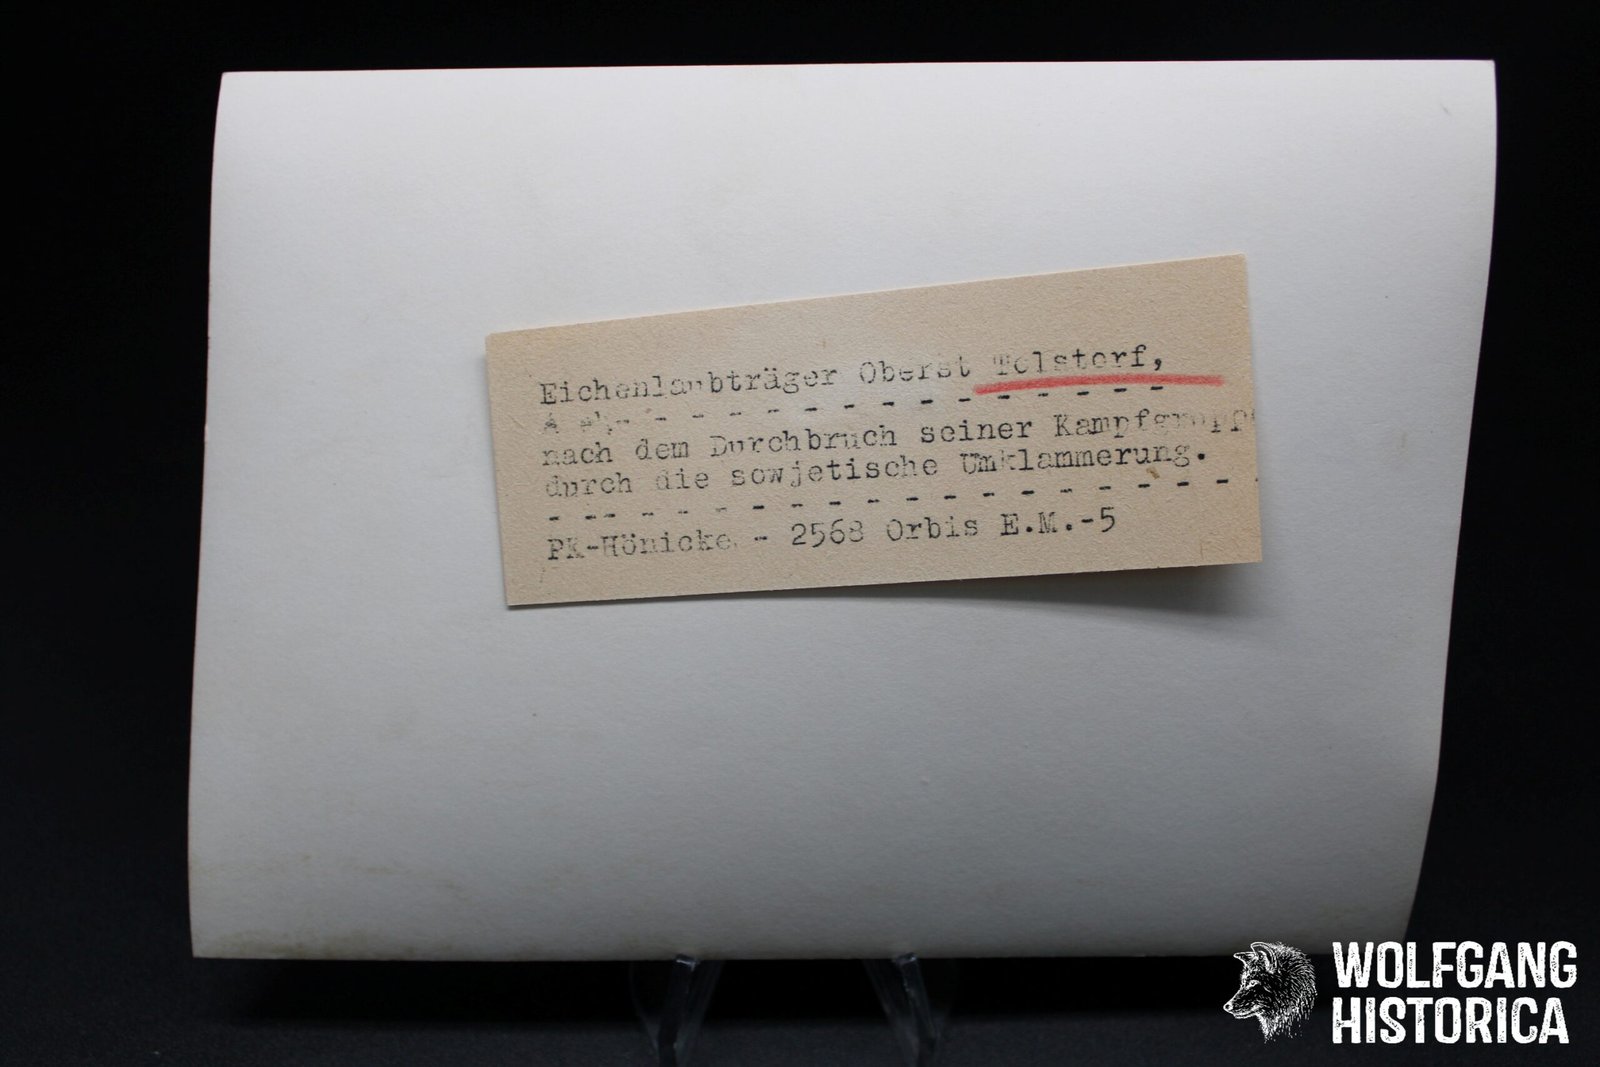 Eichenlaubträger Oberst Tolstorf,
- - - - - - - - - - - - - -
nach dem Durchbruch seiner Kampfgrupp
durch die sowjetische Umklammerung.
- -- - - - - - - - - - - - - - - - -
PK-Hönicke - 2568 Orbis E.M.-5
WOLFGANG
HISTORICA